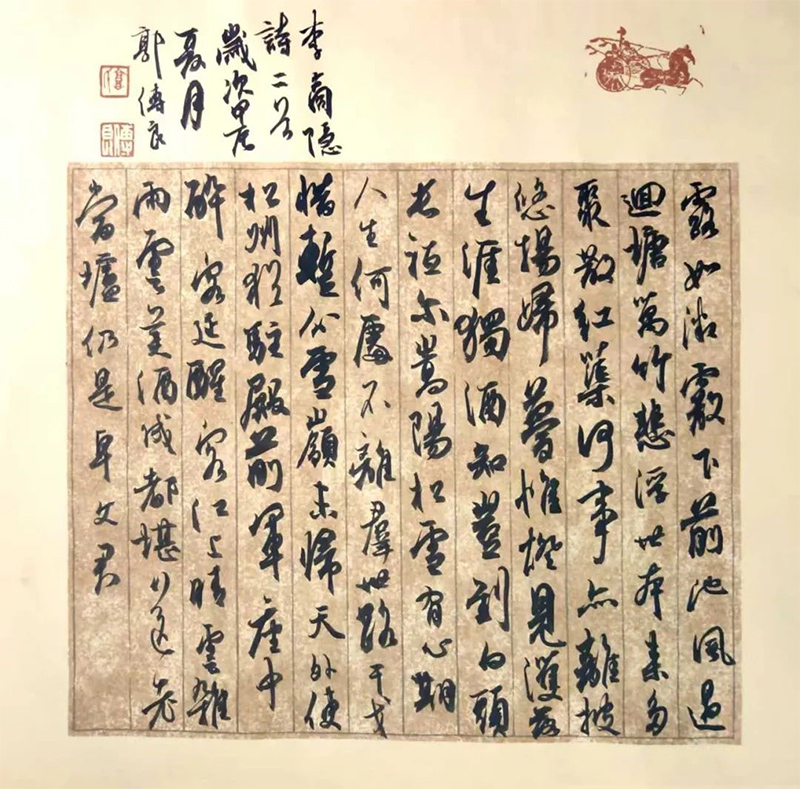 露如微霰下前池風過
迴塘萬竹悲浮世本来多
聚散紅蕖何事亦離披
悠揚歸夢惟燈見濩落
生涯獨酒知豈到白頭
長祗尔嵩陽松雪有心期
人生何處不離羣世路干戈
惜暫分雪嶺未歸天外使
松州猶駐殿前軍座中
醉客延醒客江上晴雲雜
雨雲美酒成都堪送老
當壚仍是卓文君
李商隐
詩二首
歲次甲辰
夏月
郭傳良